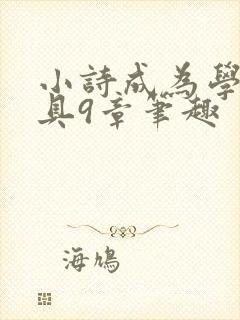 小詩成為學
具9章筆趣
海鳩